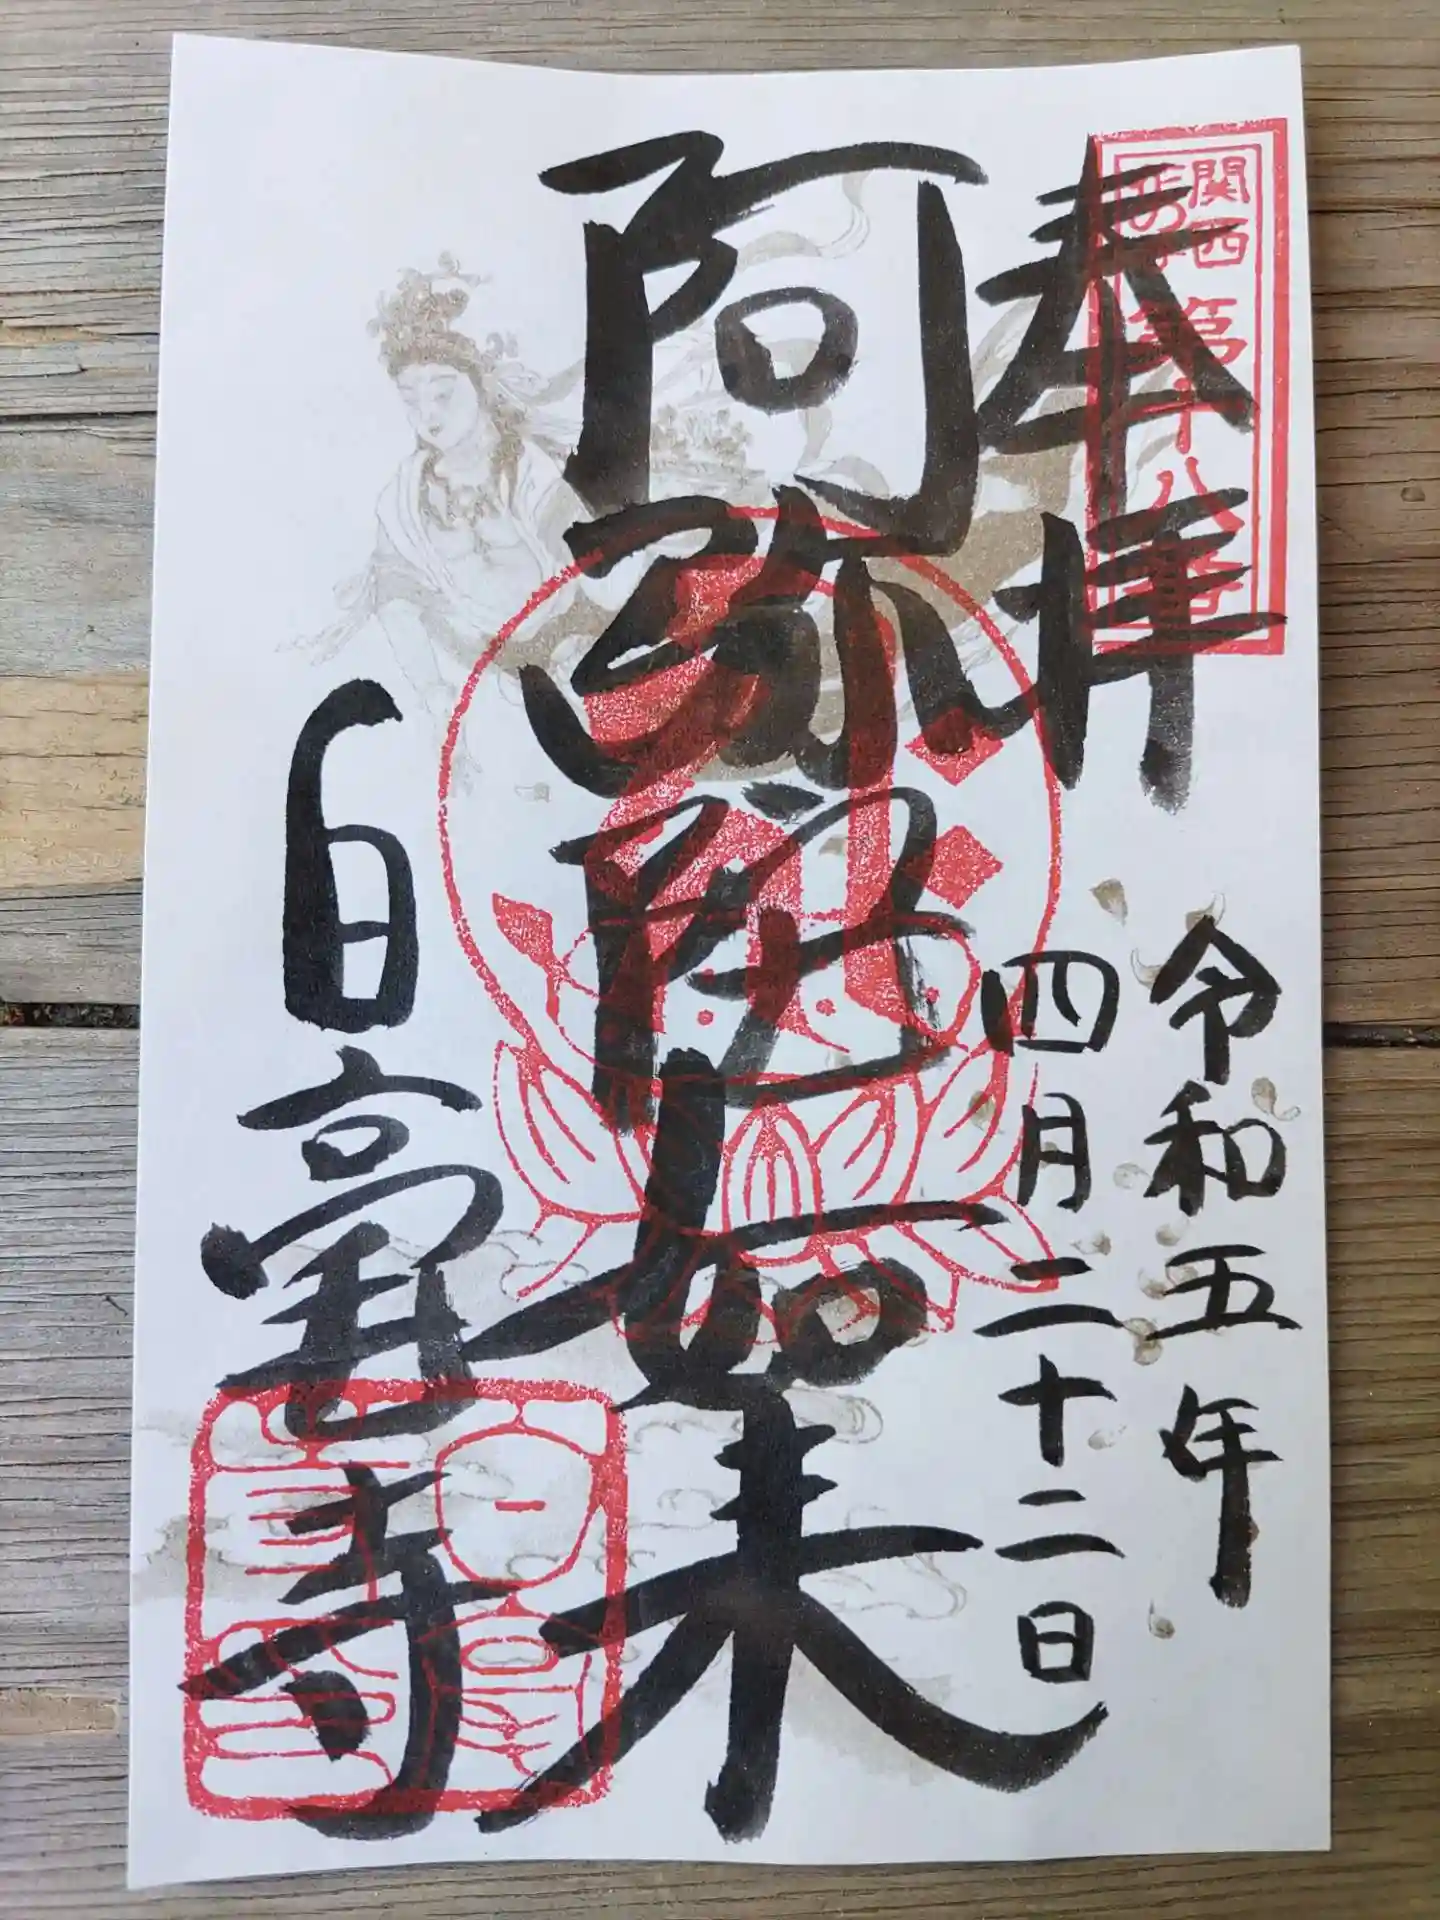 関西
花の寺
第十八番
奉拝
令和五年
四月二十二日
阿弥陀如来
白毫寺